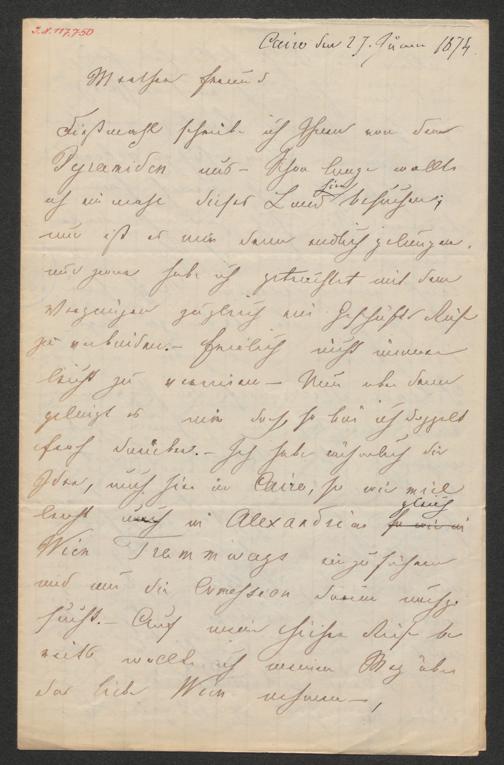 I.N. 117.750
Cairo den 27. Jänner 1874.
Werther Freund
Dießmahl schreibe ich Ihnen von den
Pyramiden aus – Schon lange wollte
ich einmahl dieses Land hier besuchen,
nun ist es mir denn endlich gelungen.
und zwar habe ich getrachtet mit dem
Vergnügen zugleich eine Geschäfts Reise
zu verbinden. – Freilich nicht immer
leicht zu vereinen – Nun aber denn
gelingt es mir doch, so bin ich doppelt
froh darüber. – Ich habe nähmlich die
Idee, auch hier in Cairo, so wie
leicht auch in Alexandrien gleich so wie in
Wien Tramways einzuführen
und um die Concession darum nachge
sucht. – Auf meiner Reise be
reits wollte ich meinen Weg über
das liebe Wien nehmen –,